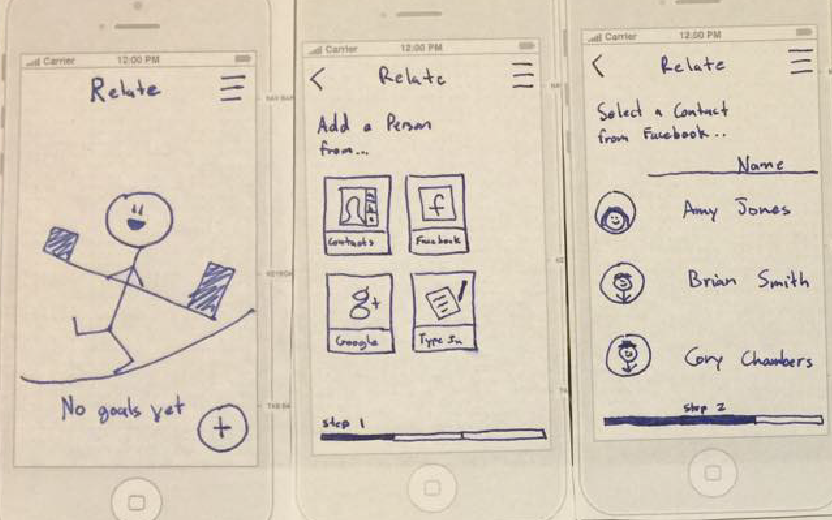 Carrier 12:00 PM
Relate
No goals yet
+
Carrier 12:00 PM
< Relate
Add a Person
from...
Contacts
f
Facebook
g+
Google
Type In
step 1
Carrier 12:00 PM
< Relate
Select a Contact
from Facebook...
Name
Amy Jones
Brian Smith
Cory Chambers
step 2